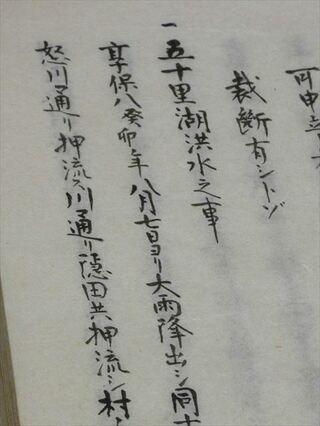 可申立
裁断有シトゾ
一五十里湖洪水之事
享保八癸卯年八月七日ヨリ大雨降出シ同
怒川通リ押流ス川通リ隠田共押流シ村